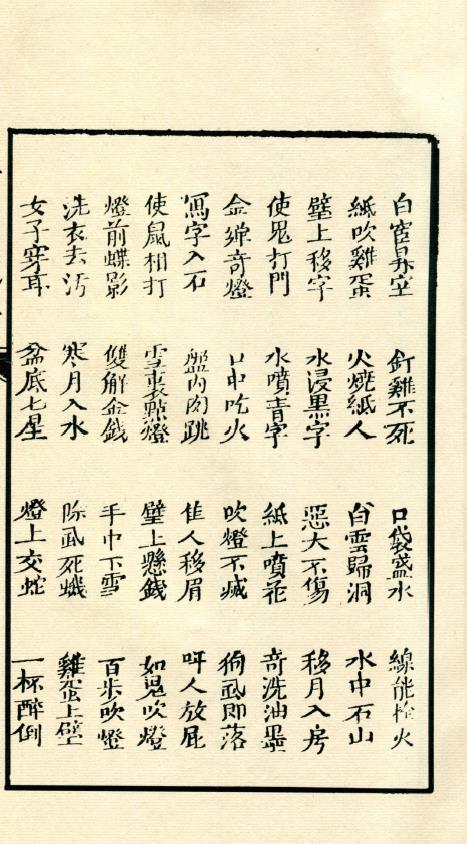 白宦昇空 釘雞不死 口袋盛水 線能栓火
紙吹雞蛋 火燒紙人 白雲歸洞 水中石山
壁上移字 水浸黑字 惡大不傷 移月入房
使鬼打門 水噴青字 紙上噴花 奇洗油墨
金蟬奇燈 口中吃火 吹燈不滅 狗虱即落
寫字入石 盤內肉跳 佳人移眉 呀人放屁
使鼠相打 雪裏點燈 壁上懸錢 如鬼吹燈
燈前蝶影 雙解金錢 手巾下雪 百步吹燈
洗衣去污 寒月入水 除虱死蟻 雞蛋上壁
女子穿耳 盆底七星 燈上交蛇 一杯醉倒